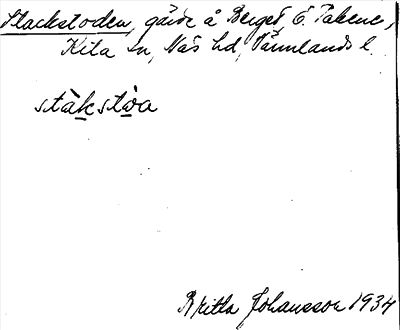 Stackstoden, gärde å Berget, Ö. Takene,
Kila sn, Näs hd, Värmlands l.
stàkstòa
Britta Johansson 1934